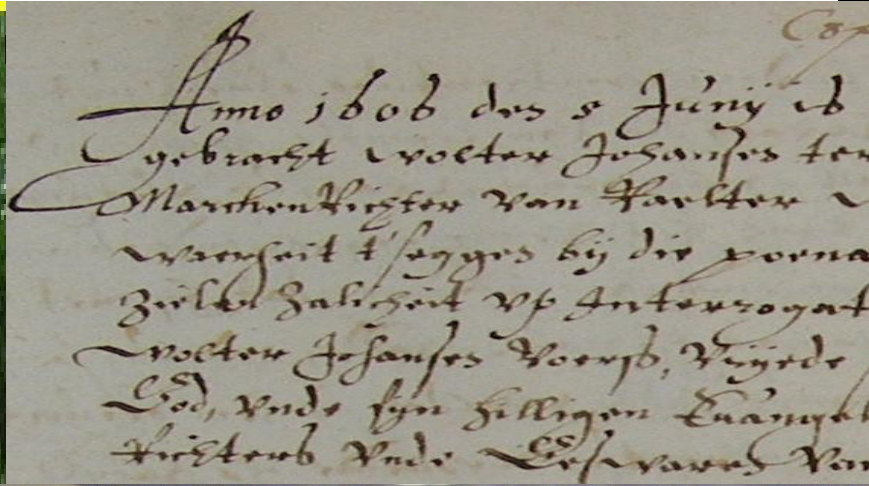 Cop
Anno 1606 den 5 Junij is
gebracht wolter Johansen ter
Marckenrichter van Raelter
waerheit t' seggen bij die poena
Zielen Zalicheit vp Interrogat
wolter Johansen Voerss,
God, vnde syn hilligen Euangel
Richters vnde Geswaren van